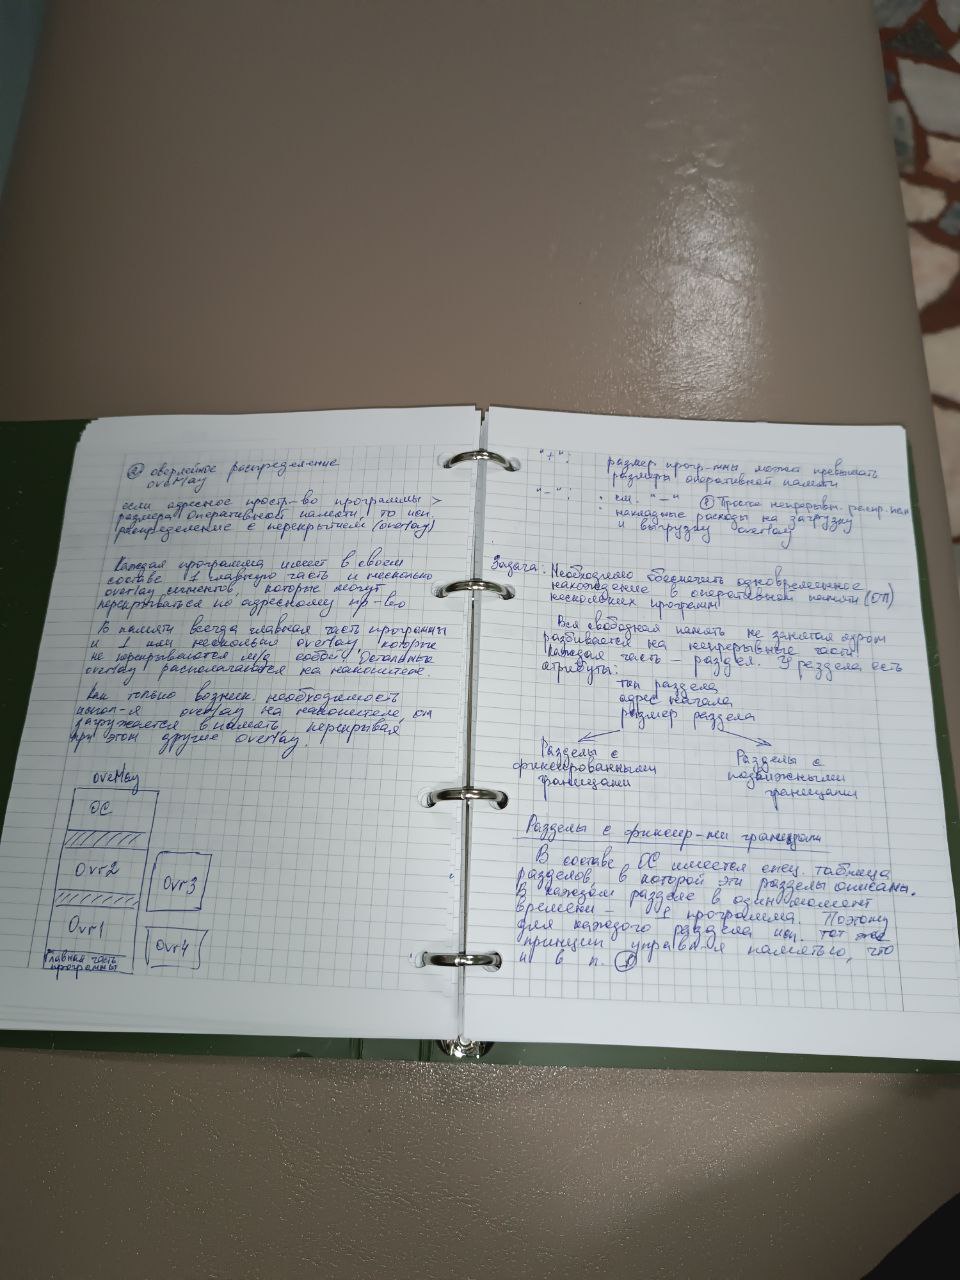 ② оверлейное распределение
overlay
если адресное простр-во программы >
размера оперативной памяти, то исп.
распределение с перекрытием (overlay)
Каждая программа имеет в своем
составе 1 главную часть и несколько
overlay сегментов, которые могут
перекрываться по адресному пр-во
В памяти всегда главная часть программы
и 1 или несколько overlay, которые
не перекрываются м/д собой. Остальные
overlay располагаются на накопителе.
Как только возник. необходимость
испол-я overlay на накопителе, он
загружается в память перекрывая
при этом другие overlay.
overlay
ОС
Ovr2
Ovr3
Ovr1
Ovr4
Главная часть
программы
"+": размер прогр-мны может превышать
размеры оперативной памяти
"–": · см. "–" ① Простое непрерывн. распр. пам
· накладные расходы на загрузку
и выгрузку overlay
Задача: Необходимо обеспечить одновременное
нахождение в оперативной памяти (ОП)
нескольких программ
Вся свободная память не занятая ядром
разбивается на непрерывные части
Каждая часть – раздел. У раздела есть
атрибуты:
тип раздела
адрес начала
размер раздела
Разделы с
фиксированными
границами
Разделы с
подвижными
границами
Разделы с фиксир-ми границами
В составе ОС имеется спец. таблица
разделов, в которой эти разделы описаны.
В каждом разделе в один момент
времени – 1 программа. Поэтому
для каждого раздела исп. тот же
принцип управ-я памятью, что
и в п. ①